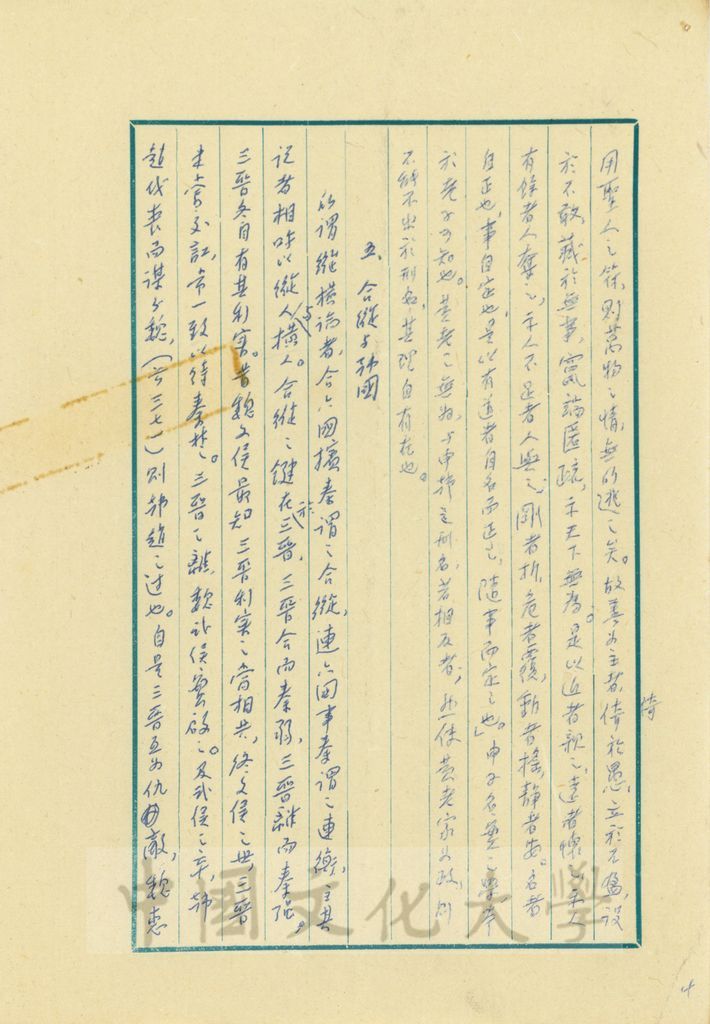 用聖人之符,則萬物之情,無所逃之矣。故善為主者,倚於愚,立於不盈,設
倚
於不敢,藏於無事,竄端匿疏,示天下無為。是以近者親之,遠者懷之。示人
有餘者人奪之,示人不足者人與之。剛者折,危者覆,動者搖,靜者安。名者
自正也,事自定也。是以有道者自名而正之,隨事而定之也」。申子名實之學本
於老子可知也。黃老之無為,與申韓之刑名,若相反者,然使黃老家為政,則
不能不出於刑名,其理自有在也。
五、合縱與韓國
所謂縱橫論者,合六國擯秦謂之合縱,連六國事秦謂之連衡,主其
說者相呼以縱人與橫人。合縱之鍵在於三晉,三晉合而秦弱,三晉離而秦强。
三晉各自有其利害。昔魏文侯最知三晉利害之當相共,終文侯之世,三晉
未嘗交訌,常一致以待秦楚。三晉之離,魏武侯實啟之。及武侯之卒,韓
趙伐喪而謀分魏,(前三七一)則韓趙之過也。自是三晉互為仇敵,魏惠
中國文化大學
4